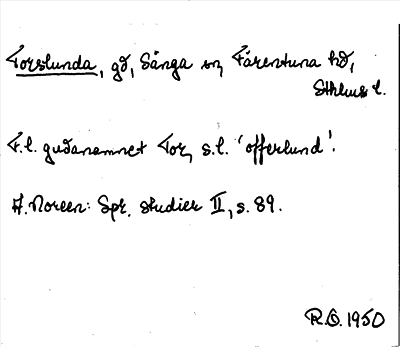 Torslunda, gd, Sånga sn, Färentuna hd,
Sthlms l.
F.l. gudanamnet Tor, s.l. 'offerlund'.
A. Noreen: Spr. studier II, s. 89.
R.O. 1950